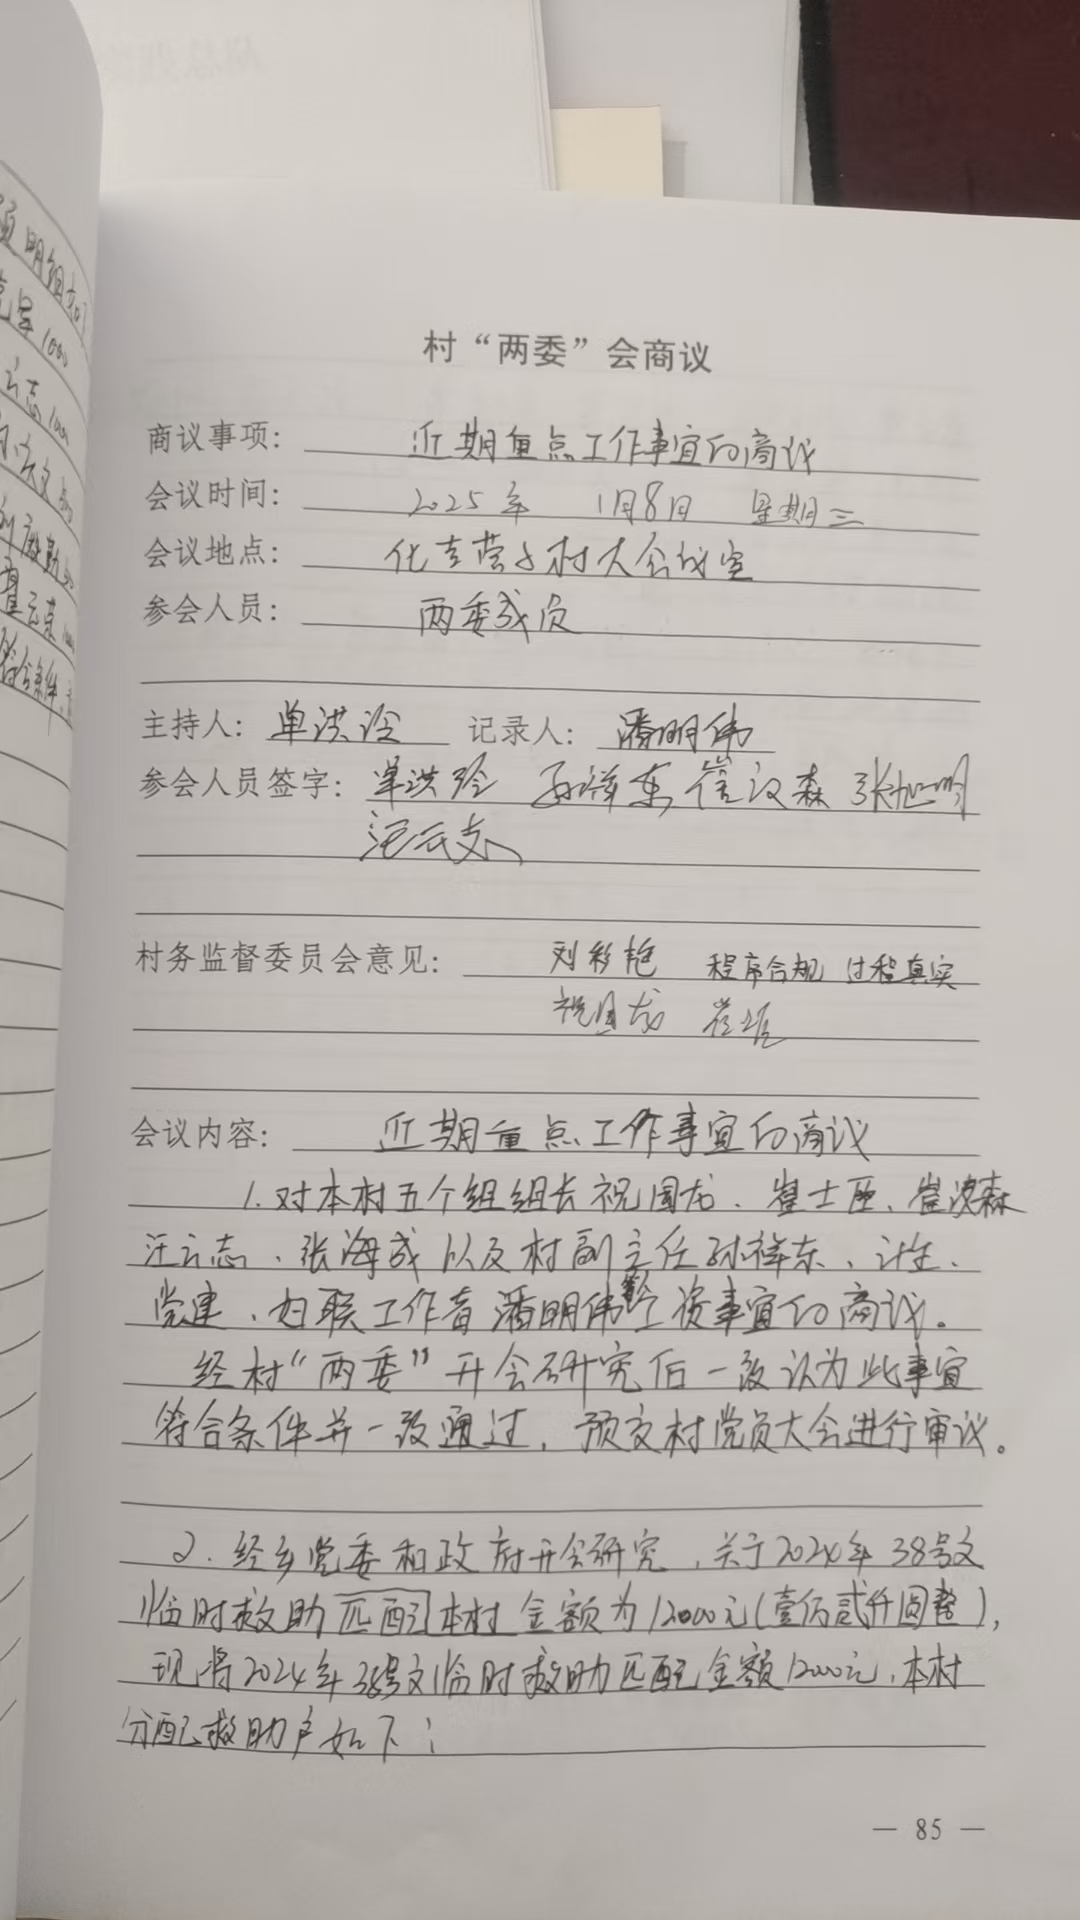 村“两委”会商议
商议事项： 近期重点工作事宜的商议
会议时间： 2025年 1月8日 星期三
会议地点： 化吉营子村大会议室
参会人员： 两委成员
主持人： 单洪玲 记录人： 潘明伟
参会人员签字： 单洪玲 孙祥东 崔汉森 张旭明
汪云志
村务监督委员会意见： 刘彩艳 程序合规 过程真实
祝国龙
会议内容： 近期重点工作事宜的商议
1.对本村五个组组长祝国龙、崔士臣、崔汉森
汪云志、张海成以及村副主任孙祥东、计生、
党建、妇联工作者潘明伟工资事宜的商议。
经村“两委”开会研究后一致认为此事宜
符合条件并一致通过，预交村党员大会进行审议。
2.经乡党委和政府开会研究，关于2024年38号文
临时救助匹配本村金额为12000元(壹佰贰仟圆整)，
现将2024年38号文临时救助匹配金额12000元，本村
分配救助户如下：
— 85 —
明细如
1000
云志 1000
云文 500
500
云东
符合条件，